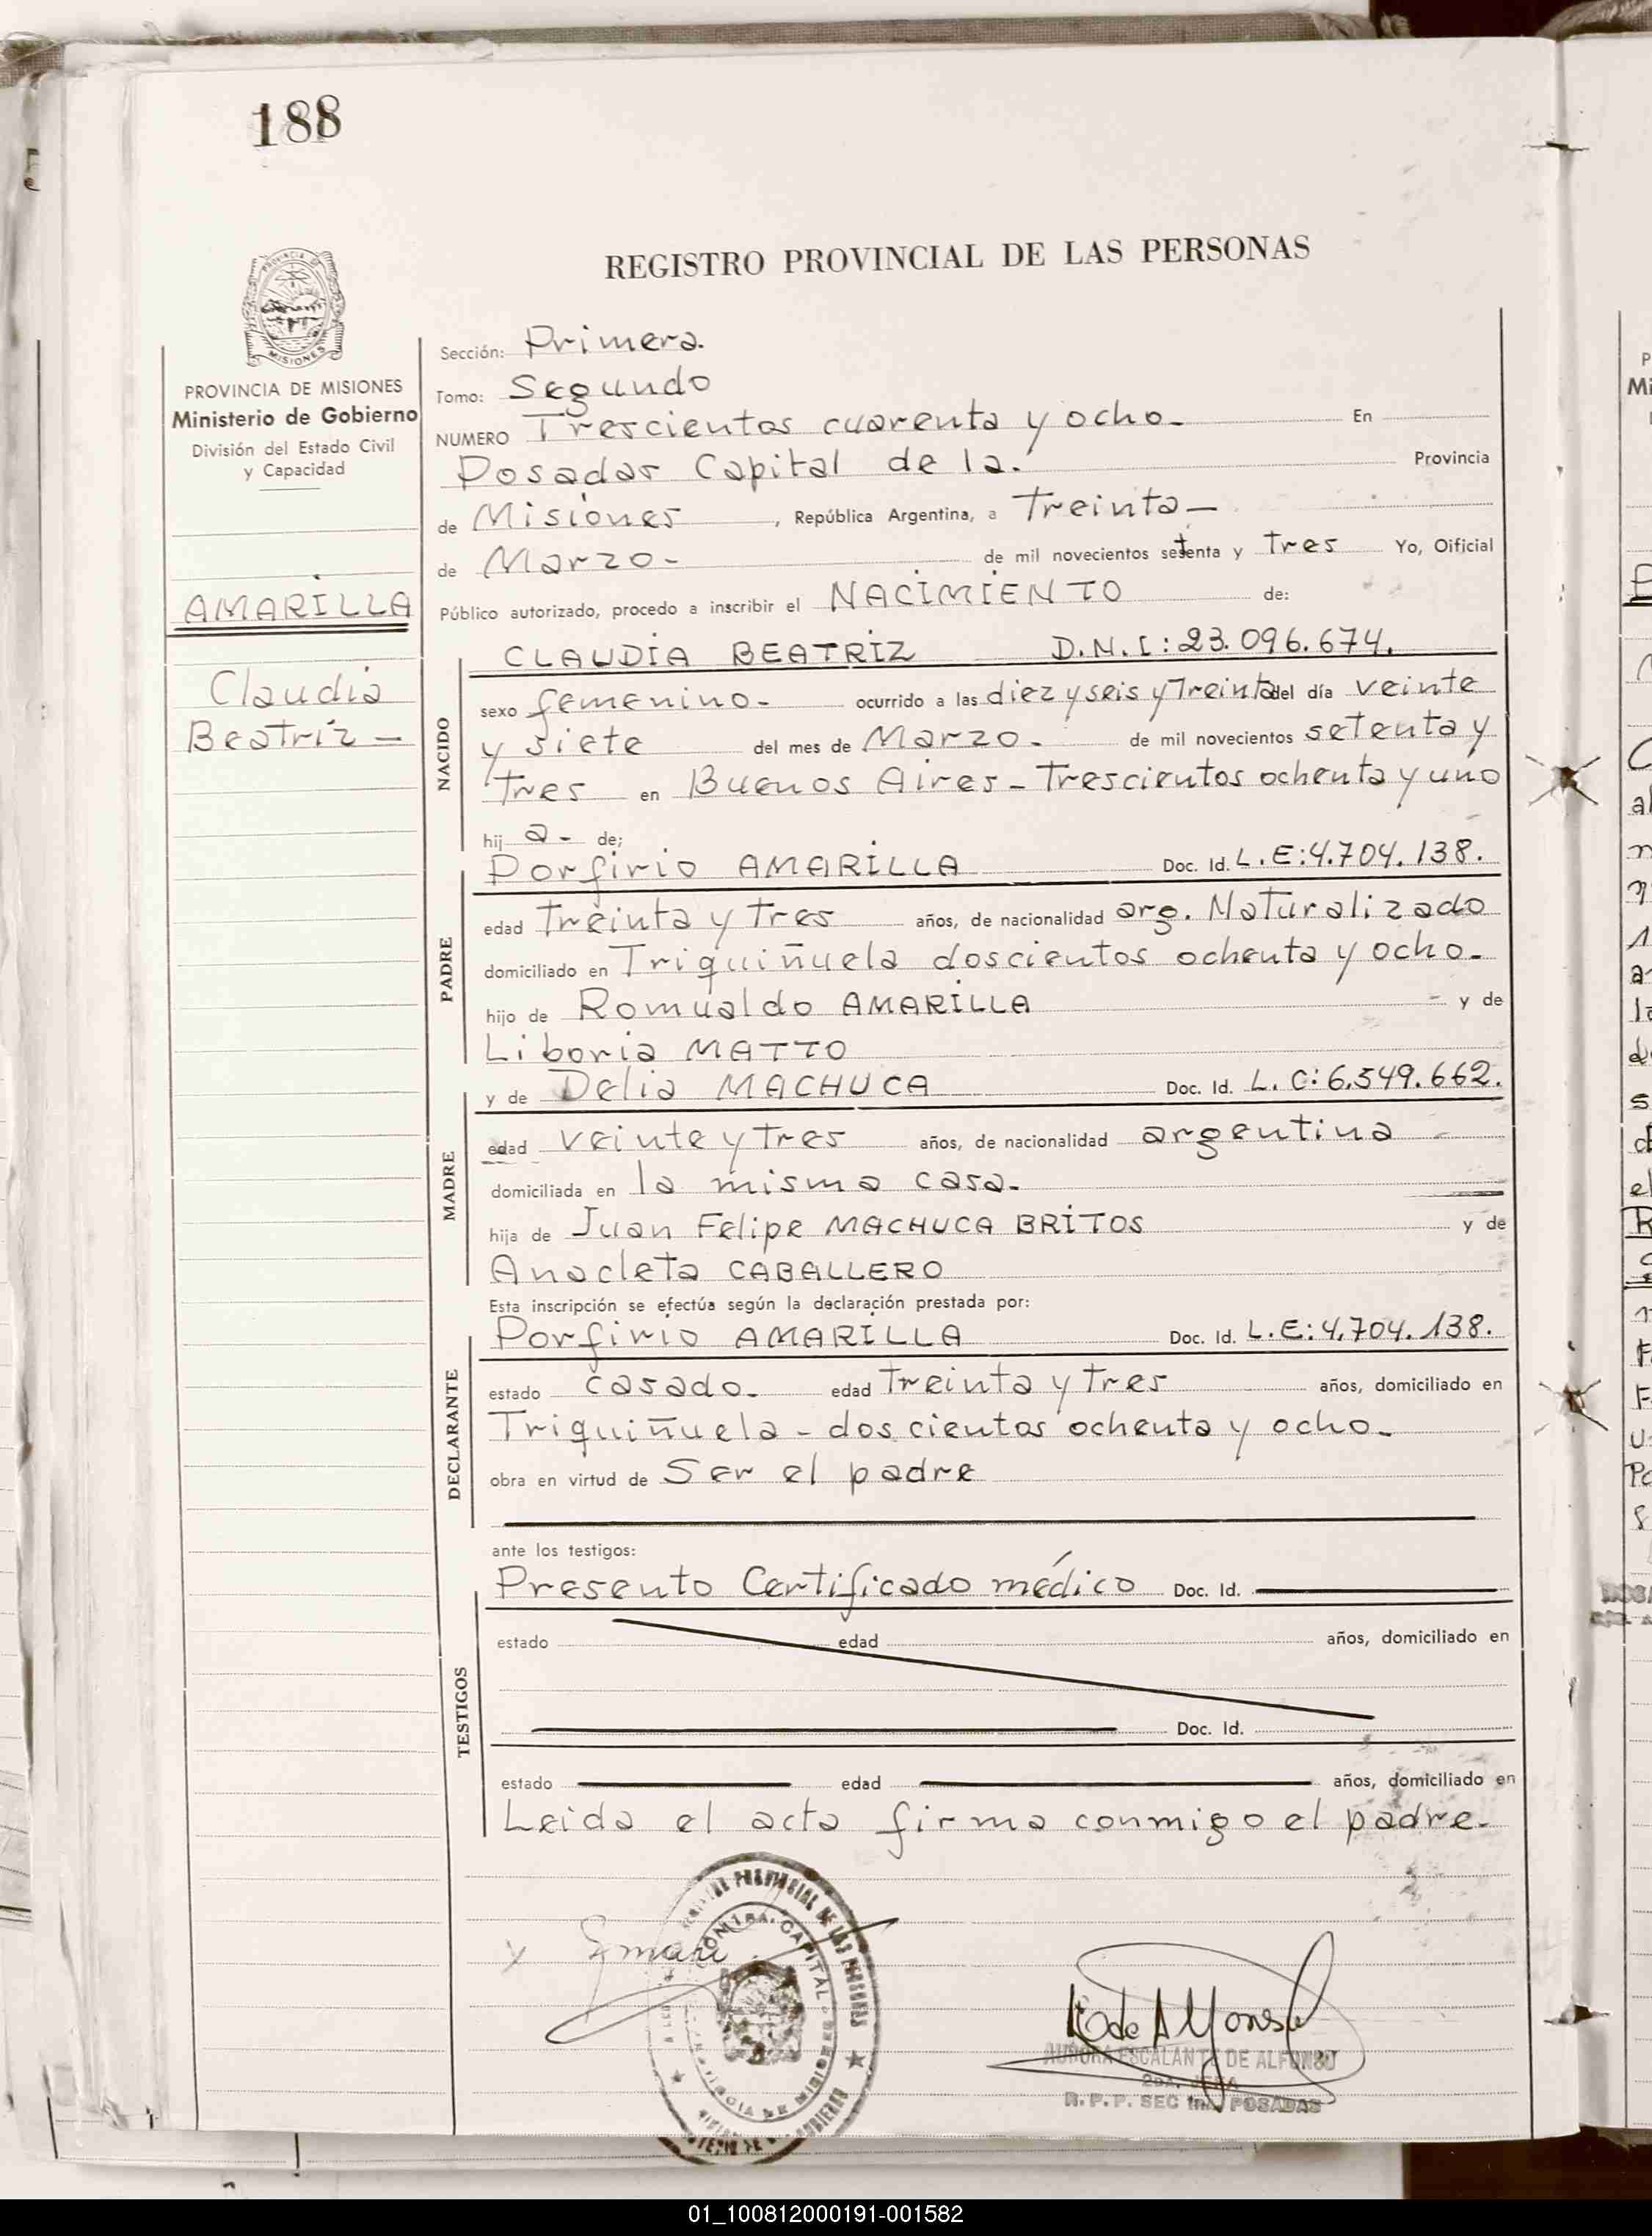 188
REGISTRO PROVINCIAL DE LAS PERSONAS
PROVINCIA DE MISIONES
Ministerio de Gobierno
División del Estado Civil
y Capacidad
AMARILLA
Claudia
Beatriz -
Sección: Primera.
Tomo: Segundo
NUMERO Trescientos cuarenta y ocho - En
Posadas Capital de la. Provincia
de Misiones, República Argentina, a Treinta -
de Marzo - de mil novecientos setenta y Tres Yo, Oificial
Público autorizado, procedo a inscribir el NACIMIENTO de:
NACIDO
CLAUDIA BEATRIZ D.N.I: 23.096.674.
sexo femenino - ocurrido a las diez y seis y Treinta del día veinte
y siete del mes de Marzo - de mil novecientos setenta y
Tres en Buenos Aires - Trescientos ochenta y uno
hij a - de;
PADRE
Porfirio AMARILLA Doc. Id. L.E: 4.704.138.
edad Treinta y Tres años, de nacionalidad arg. Naturalizado
domiciliado en Triquiñuela doscientos ochenta y ocho -
hijo de Romualdo AMARILLA y de
Liboria MATTO
MADRE
y de Delia MACHUCA Doc. Id. L.C: 6.549.662.
edad veinte y Tres años, de nacionalidad argentina
domiciliada en la misma casa -
hija de Juan Felipe MACHUCA BRITOS y de
Anacleta CABALLERO
Esta inscripción se efectúa según la declaración prestada por:
DECLARANTE
Porfirio AMARILLA Doc. Id. L.E: 4.704.138.
estado casado - edad Treinta y Tres años, domiciliado en
Triquiñuela - doscientos ochenta y ocho -
obra en virtud de Ser el padre
ante los testigos:
TESTIGOS
Presento Certificado médico Doc. Id.
estado edad años, domiciliado en
Doc. Id.
estado edad años, domiciliado en
Leida el acta firma conmigo el padre -
AURORA ESCALANTE DE ALFONSO
R. P. P. SEC 1ra. POSADAS
01_100812000191-001582